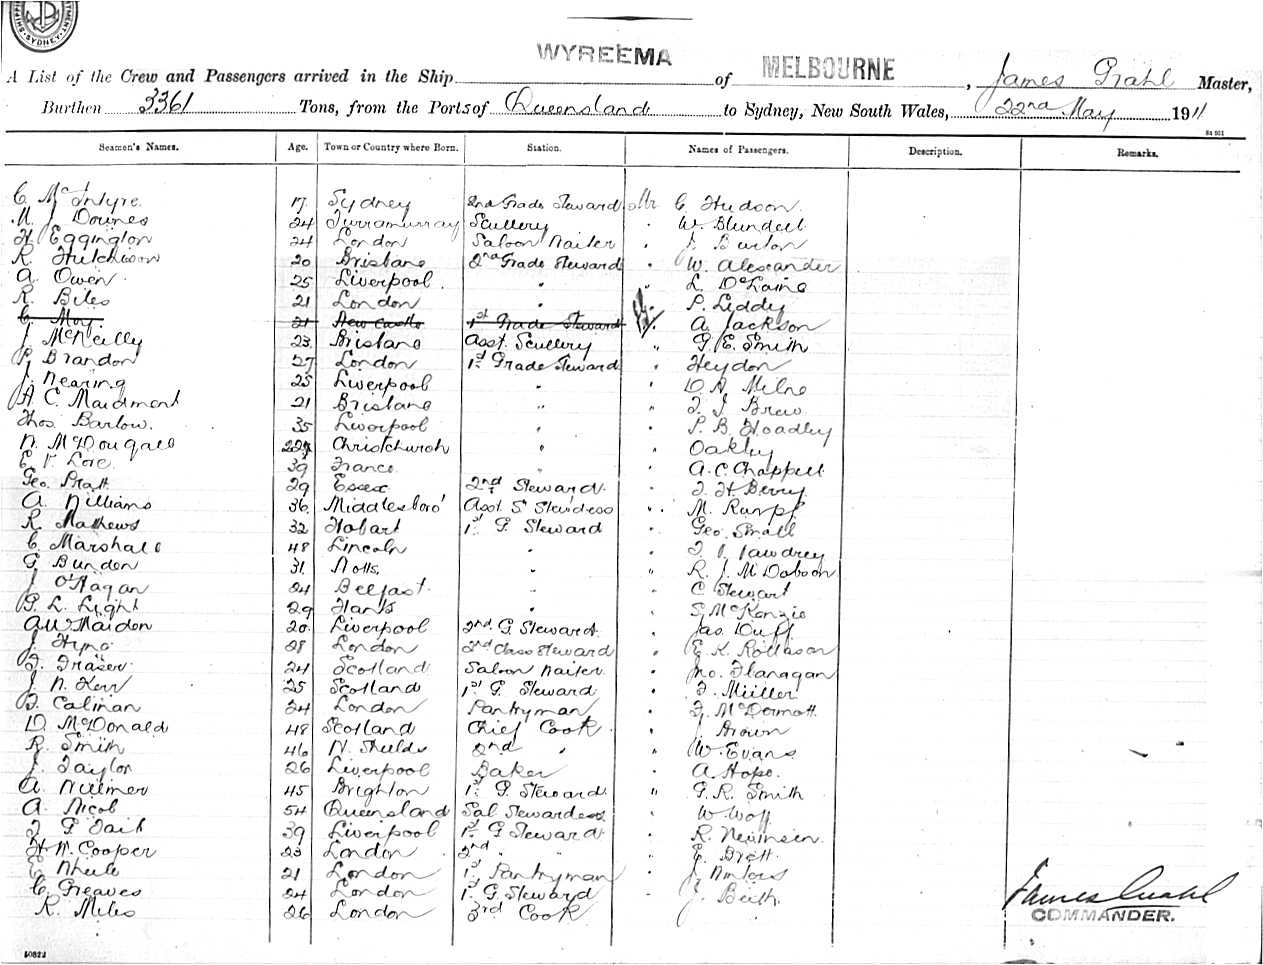 SYDNEY.
WYREEMA
MELBOURNE
A List of the Crew and Passengers arrived in the Ship of , James Prahl Master,
Burthen 3361 Tons, from the Ports of Queensland to Sydney, New South Wales, 22nd May 1911
Seamen's Names. Age. Town or Country where Born. Station. Names of Passengers. Description. Remarks.
C. McIntyre. 17 Sydney 2nd Grade Steward Mr C Hudson.
J Downes 24 Turramurray Scullery " W. Blundell
H Eggington 24 London Saloon Waiter " J. Burton
R. Hutchison 20 Brisbane 2nd Grade Steward " W. Alexander
A. Owen 25 Liverpool. " " L.
R. Biles 21 London " " P. Liddy
C May 21 New Castle 1st Grade Steward " A. Jackson
J McNeilly 23 Brisbane Asst. Scullery " G. E. Smith
P. Brandon 27 London 1st Grade Steward " Heydon
J. Nearing 25 Liverpool " " D. A. Milne
A C. Maidment 21 Brisbane " " J. J Brew
Thos. Barlow. 35 Liverpool " " P. B. Hoadley
N. McDougall Christchurch " " Oakley
39 France " " A. C. Chappell
Geo. Pratt 29 Essex 2nd Steward " J. H. Berry
A. Williams 36 Middlesboro' Asst. S Stewdess " M. Rumpf
R. Mathews 32 Hobart 1st G. Steward " Geo. Small
C. Marshall 48 Lincoln " "
G Bunden 31 Notts. " " R. J. McDobson
J O'Hagan 24 Belfast. " " C Stewart
G. L. Light 29 Hants " " S. McKenzie
A W Maidon 20 Liverpool 2nd. G. Steward. " Jas Duff
J. 28 London 2nd Class Steward " E. K. Rollason
J. Fraser 24 Scotland Saloon Waiter " Jno. Flanagan
J. N. Kerr 25 Scotland 1st G. Steward " J. Müller
J. Calinan 24 London Pantryman " J. McDermott
D. McDonald 48 Scotland Chief Cook " J. Brown
R. Smith 46 N. Shields 2nd " " W. Evans
J. Taylor 26 Liverpool Baker " A. Hope.
A. Willmer 45 Brighton 1st G. Steward " G. R. Smith
A. Nicol 54 Queensland Sal Stewardess " W Wolf
J G Tait 39 Liverpool 1st G Steward " R. Newinsen
H W. Cooper 23 London 2nd " " E. Brett
21 London 1st Pantryman " J. Winters
C. Greaves 24 London 1st G. Steward " J. Beith.
R. Miles 26 London 3rd Cook
James Prahl
COMMANDER.